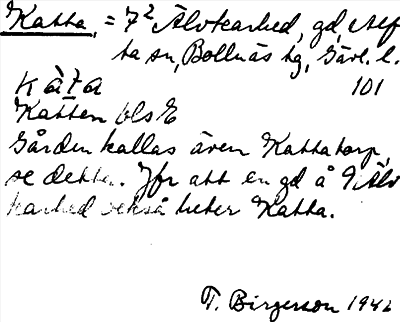 Katta, = 7² Älvkarhed, gd, Alf
ta sn, Bollnäs tg, Gävl. l.
Kàta 101
Katten bls E
Gården kallas även Kattatorp,
se detta. Jfr att en gd å 9 Älv
karhed också heter Katta.
T. Birgerson 1946